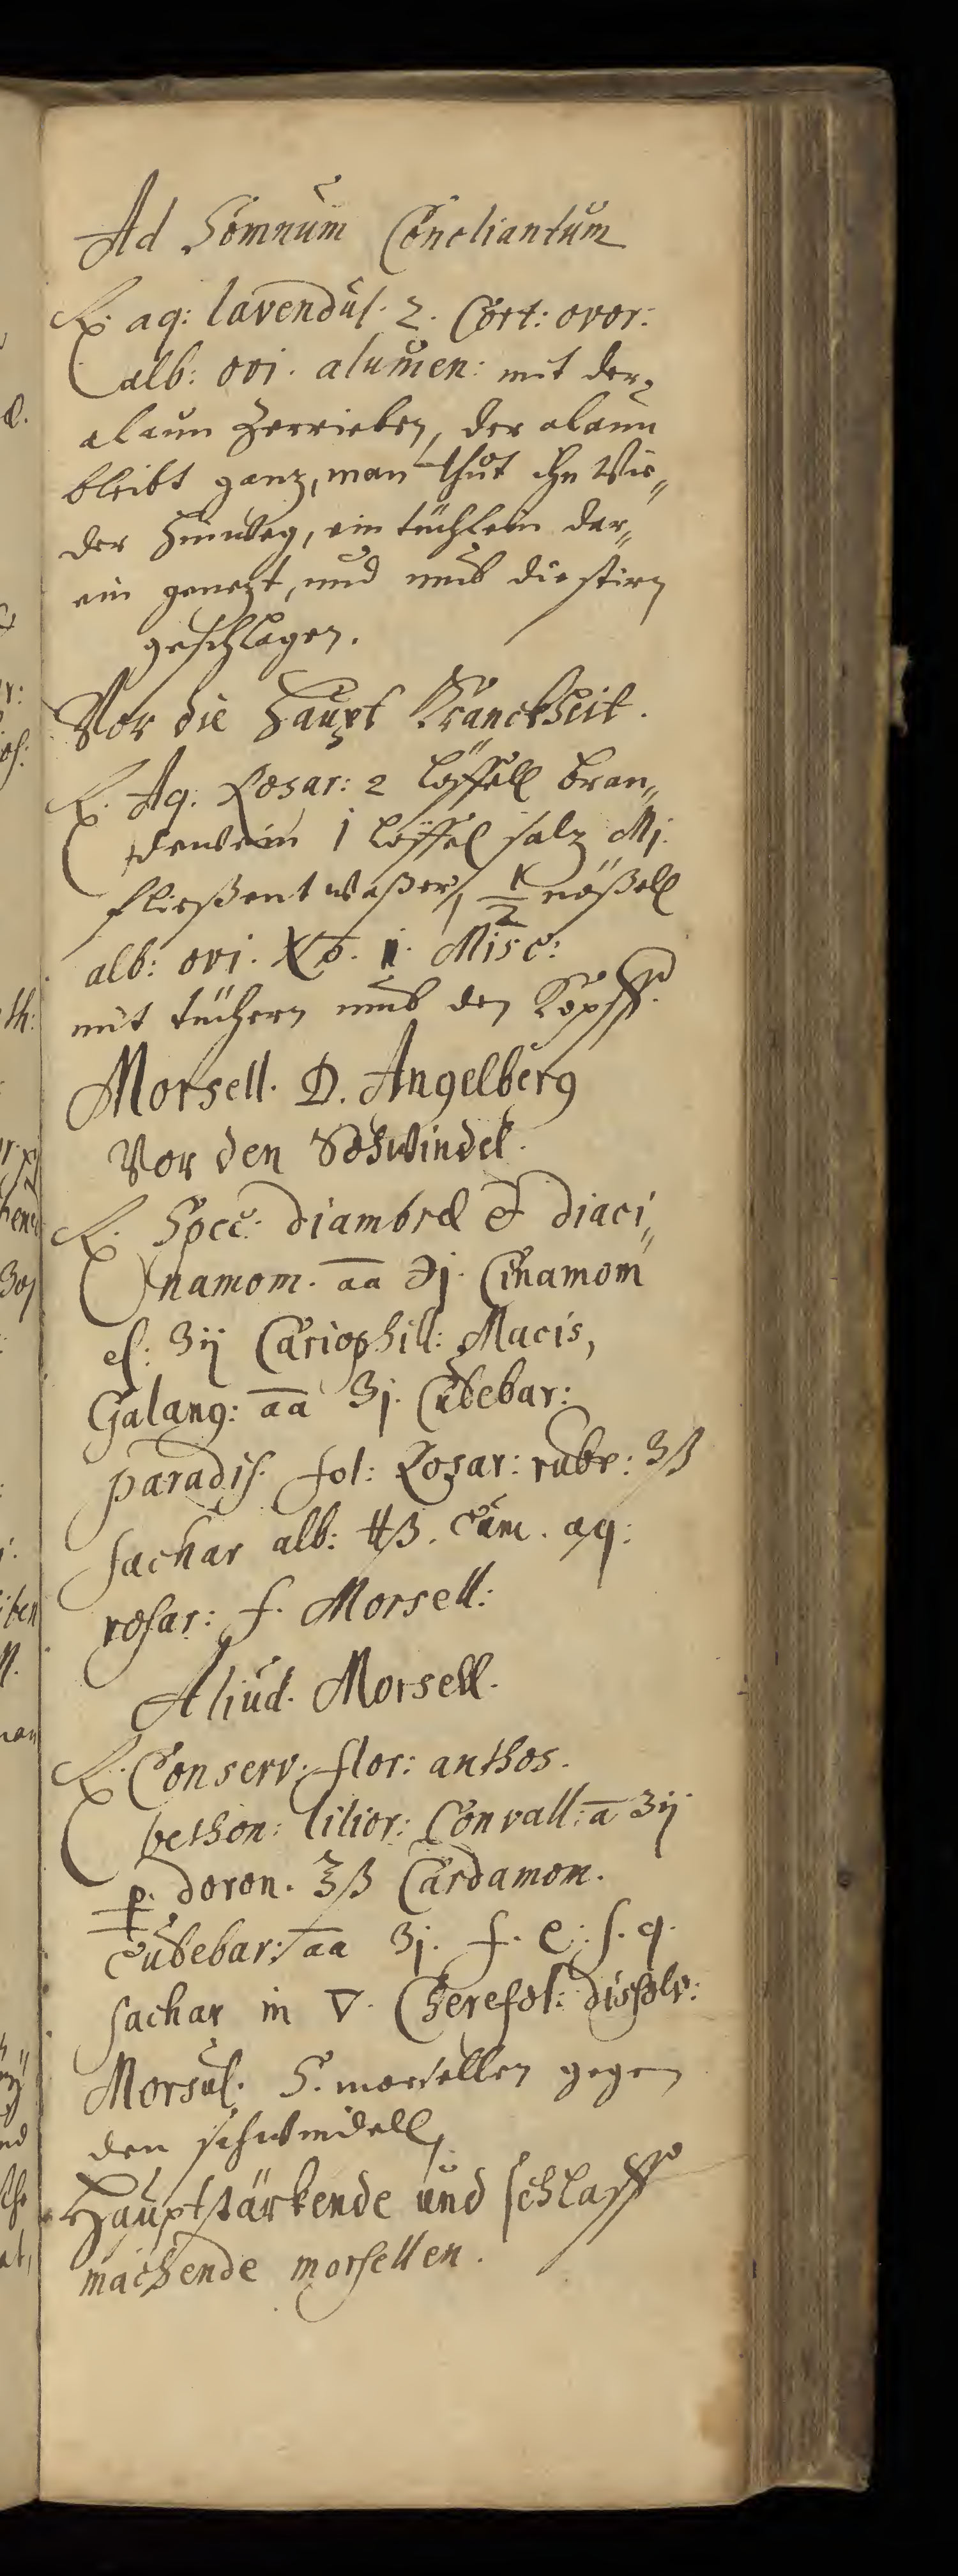 Ad Somnum Conciliantum
℞. aq: lavendul. 2. Cort: ovor:
alb: ovi. alumen: mit der
alaun Zerrieben, der alaun
bleibt ganz, man thut ihn Wie„
der hinweg, ein tüchlein dar„
ein genezt, und umb die stirn
geschlagen.
Vor die Haupt Kranckheit.
℞. Aq. Rosar: 2 löffell bran„
dewein 1 löffel salz Mj.
fließent waßer, ½ nößell
alb: ovi. No. i. Misc:
mit tüchern umb den Kopff.
Morsell. D. Angelberg
Vor den Schwindel.
℞. Spec: diambræ & diaci„
namom. aa ℈j. Cinamom
el: ʒij Cariophill: Macis,
Galang: aa ʒj. Cubebar:
paradis. fol: Rosar: rubr: ʒß
sachar alb: ℔ß. cum. aq:
rosar: f. Morsell:
Aliud. Morsell.
℞. Conserv. flor: anthos.
bethon: lilior: Convall: a ʒij
p. doron. ℥ß Cardamom.
cubebar: aa ʒj. f. c. s. q.
sachar in ▽. Cherefol: dissolv:
Morsul. S. morsellen gegen
den schwindell,
Hauptstärkende und schlaff
machende morsellen.